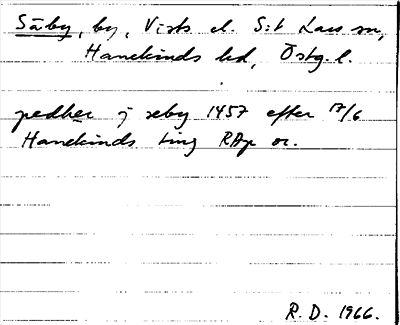 Säby, by, Vists el. S:t Lars sn,
Hanekinds hd, Östg. l.
pedher j seby 1457 efter 17/6
Hanekinds ting RAp or.
R. D. 1966.